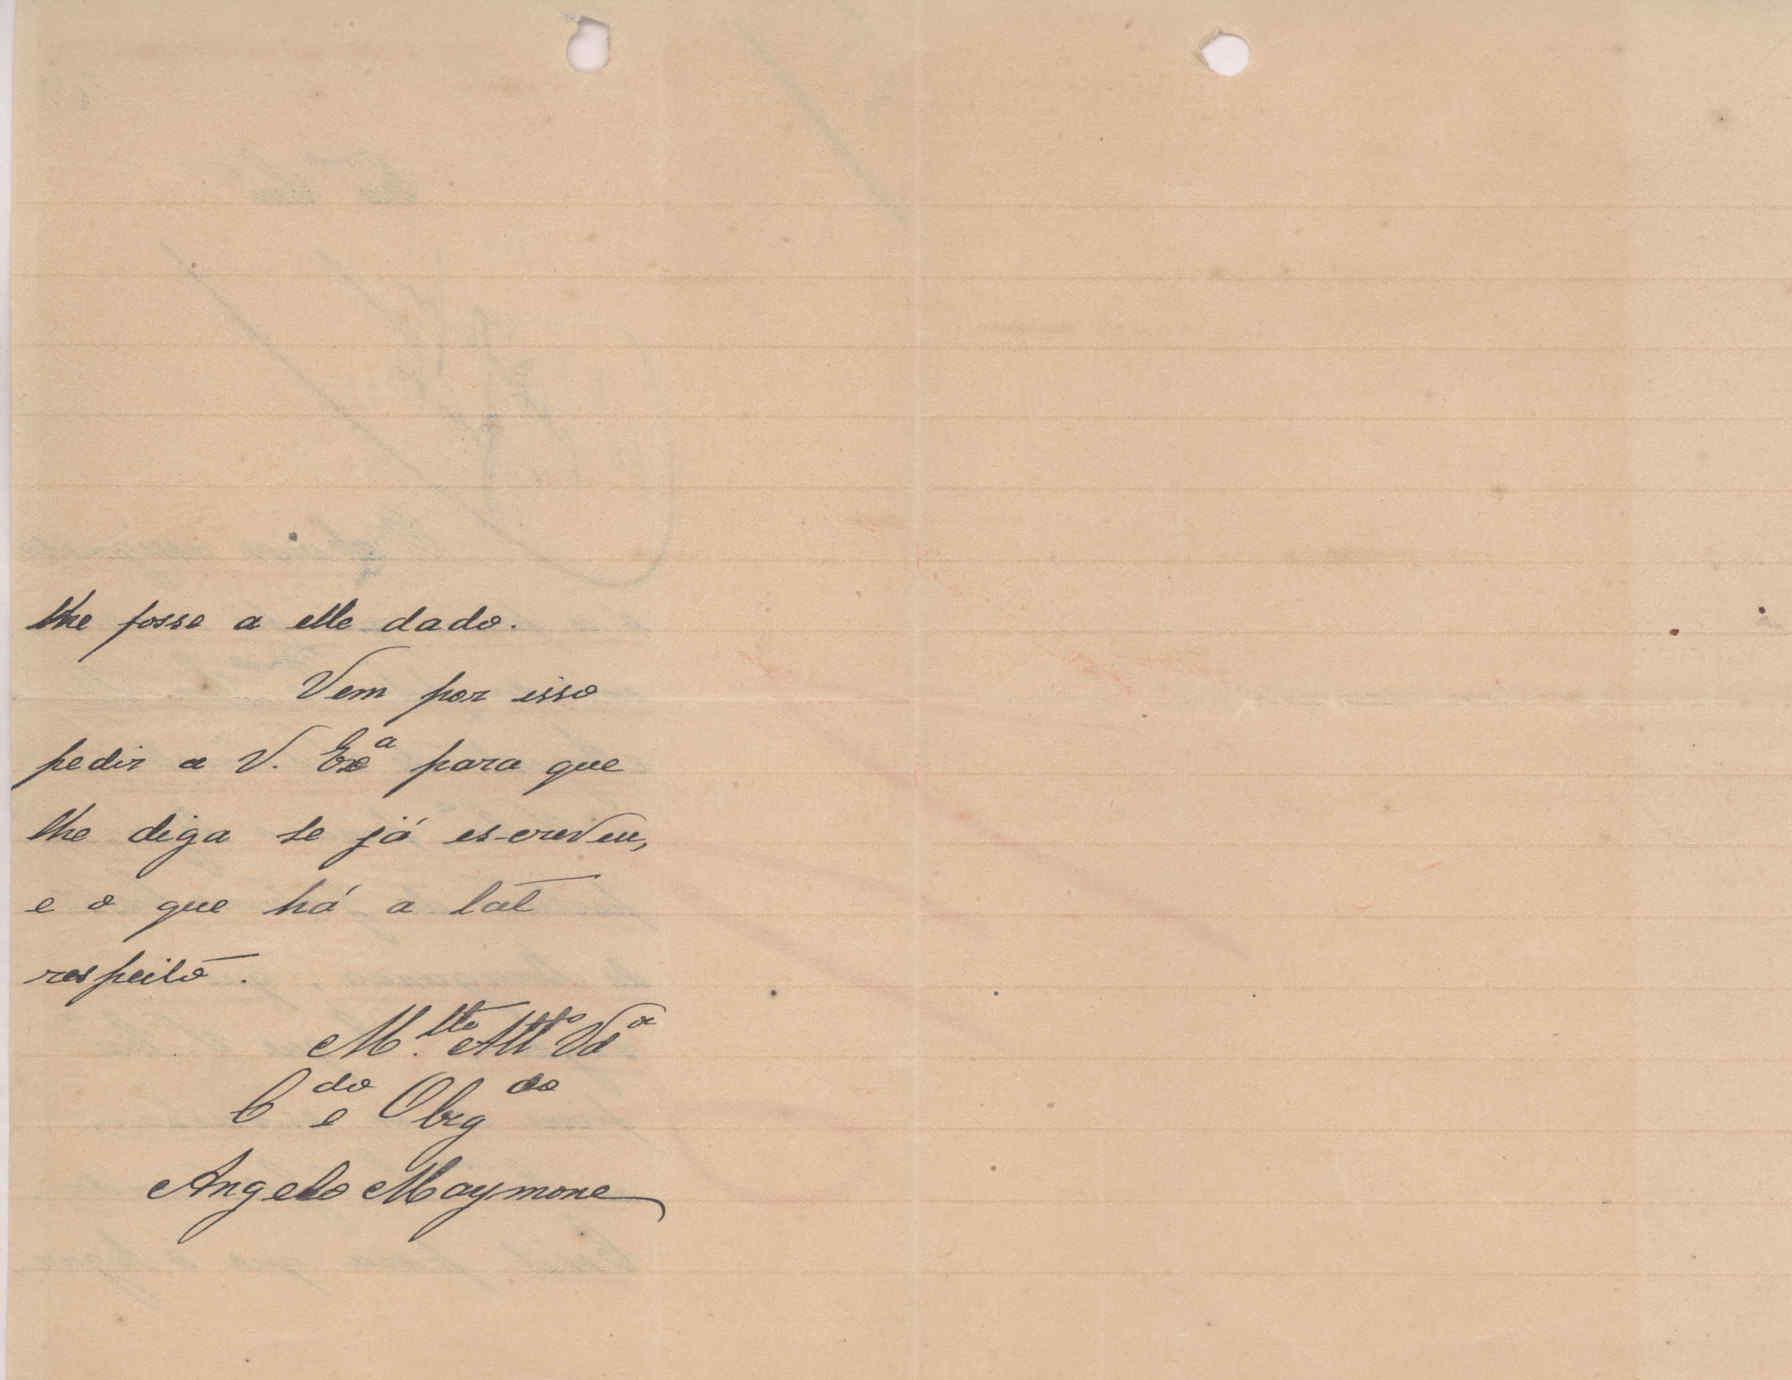 lhe fosse a elle dado.
Vem por isso
pedir a V. Exª para que
lhe diga se já escreveu,
e o que há a tal
respeito.
M.to Att.o Vdor
C.do e Obrg.do
Angelo Maymone